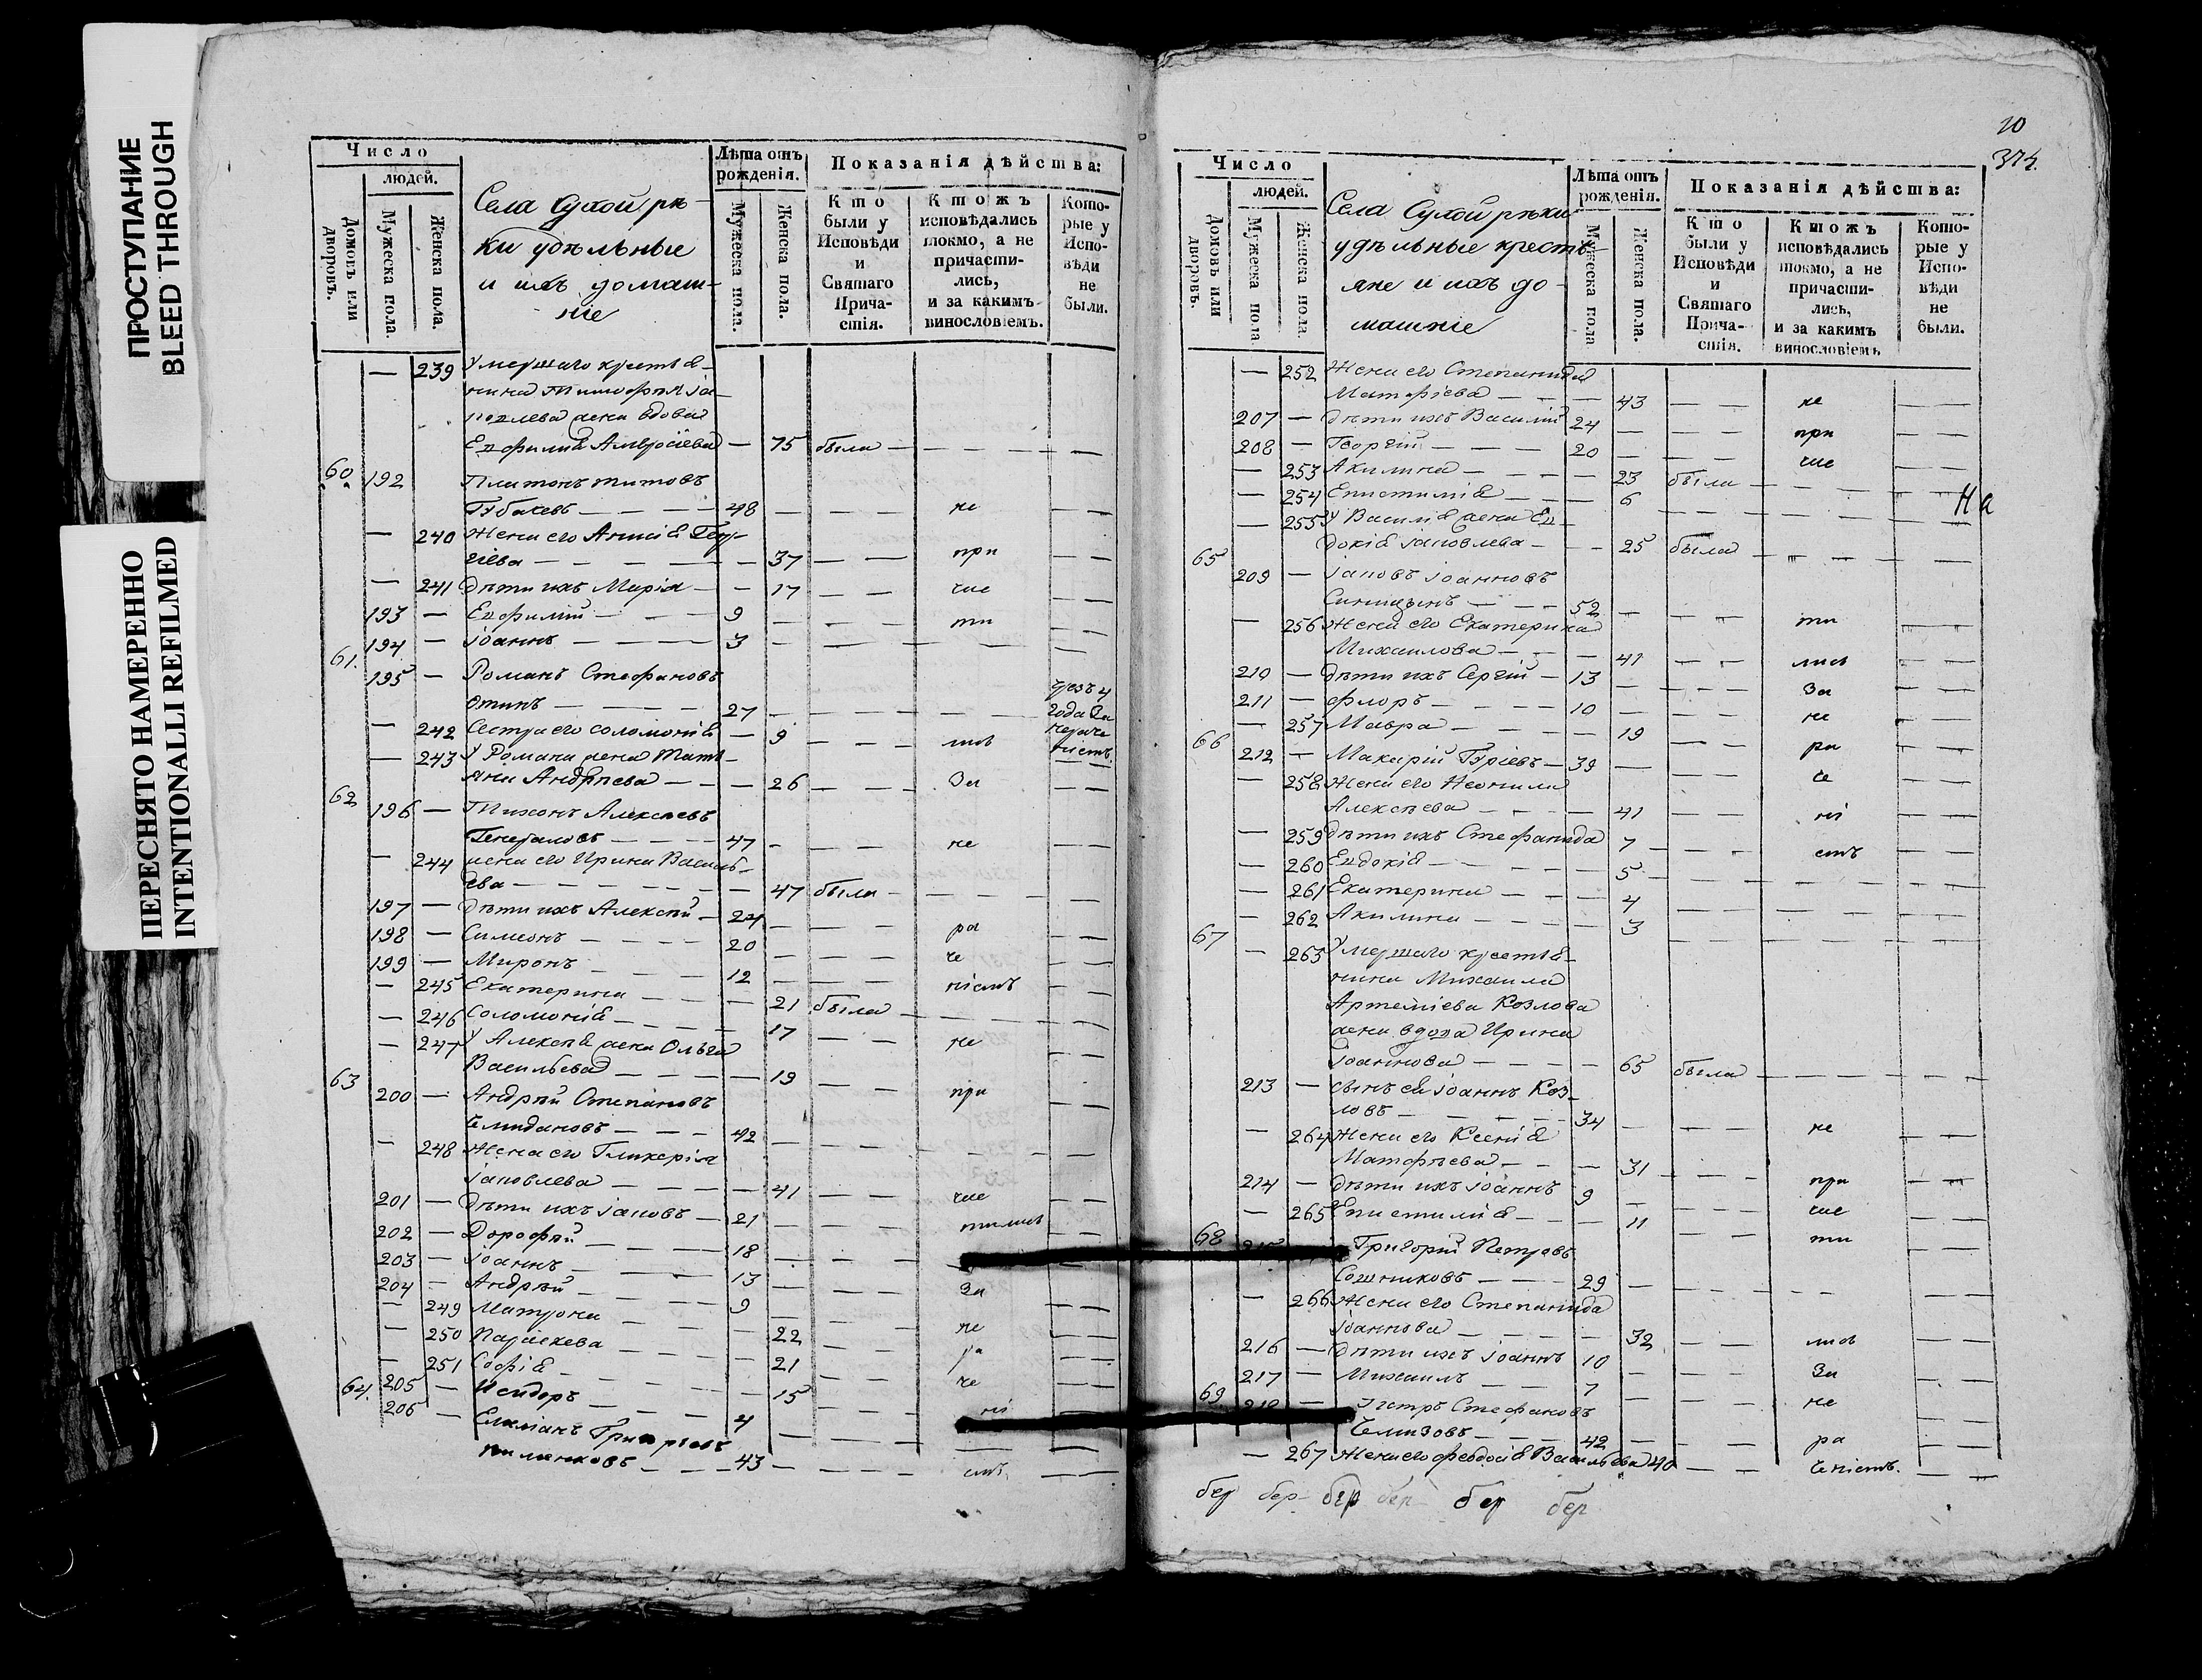 ПРОСТУПАНИЕ
BLEED THROUGH
ПЕРЕСНЯТО НАМЕРЕННО
INTENTIONALLI REFILMED
Число
людей.
Домовъ или дворовъ.
Мужеска пола.
Женска пола.
Села Сухой рѣ-
ки удѣльные
и ихъ домаш-
ніе
Лѣта отъ рожденія.
Мужеска пола.
Женска пола.
Показанія дѣйства:
Кто были у Исповѣди и Святаго Прича-стія.
Ктожъ исповѣдались токмо, а не причасти-лись, и за какимъ винословіемъ.
Кото-рые у Испо-вѣди не были.
— 239 Умершаго крестья-
нина Тимофея Іа-
ковлева жена вдова
Евфимія Амвросіева — 75 была — — — — —
60 192 Платонъ Титовъ
— — — 48 — — — не — —
— 240 Жена его Анисія Геор-
гіева — — — — 37 — — при — —
— 241 Дѣти ихъ Марія — — 17 — — чис — —
193 — Евфимій — — 9 — — — ти — —
194 — Іоаннъ — — — 3 — — — — — —
61. 195 — Романъ Стефановъ
— — — 27 — — — — —
чрезъ 4 года за нераченіемъ
— 242 Сестра его Соломонія — 9 — — — лись
— 243 У Романа жена Тать-
яна Андрѣева — — — 26 — — — За — —
62 196 — Тихонъ Алексѣевъ
Генераловъ — — — 47 — — — не — —
— 244 жена его Ирина Василь-
ева — — — — — — 47 была — — — — —
197 — Дѣти ихъ Алексѣй — 24 — — — ра — —
198 — Симеонъ — — — — 20 — — — че — —
199 — Миронъ — — — — 12 — — — ніемъ — —
— 245 Екатерина — — — — 21 была — — — — —
— 246 Соломонія — — — — 17 — — не — —
— 247 У Алексѣя жена Ольга
Васильева — — — — 19 — — при — —
63 200 — Андрѣй Степановъ
— — — 42 — — — — — —
— 248 Жена его Гликерія
Іаковлева — — — — 41 — — чис — —
201 — Дѣти ихъ Іаковъ — 21 — — — тились — —
202 — Дорофѣй — — — 18
203 — Іоаннъ — — — 13 — — — За
204 — Андрѣй — — — 9 — — — — —
— 249 Матрона — — — — 22 — — не — —
— 250 Параскева — — — — 21 — — ра — —
— 251 Софія — — — — 15 — — че — —
205 — Исидоръ — — — 4 — — — ні — —
64. 206 — Григорьевъ
— — — 43 — — — — емъ — —
10
374.
Число
людей.
Домовъ или дворовъ.
Мужеска пола
Женска пола
Села Сухой рѣки
удѣльные кресть-
яне и ихъ до-
машніе
Лѣта отъ рожденія.
Мужеска пола
Женска пола.
Показанія дѣйства:
Кто были у Исповѣди и Святаго Прича-стія.
Ктожъ исповѣдались токмо, а не причасти-лись, и за какимъ винословіемъ
Кото-рые у Испо-вѣди не были.
— 252 Жена его Степанида
Матфіева — — — 43 — — не — —
207 — Дѣти ихъ Василій 24 — — — при — —
208 — Георгій — — — 20 — — — чис — —
— 253 Акилина — — — — 23 была — — — — —
— 254 Епистимія — — — 6 — — — — —
На
— 255 У Василія жена Ев-
докія Іаковлева — — — 25 была — — — — —
65 209 — Іаковъ Іоанновъ
Синицынъ — — — 52 — — — ти — —
— 256 Жена его Екатерина
Михаилова — — — 41 — — лись — —
210 — Дѣти ихъ Сергій — 13 — — — За — —
211 — Флоръ — — — — 10 — — — не — —
— 257 Мавра — — — — — 19 — — ра — —
66 212 — Макарій — 39 — — — че — —
— 258 Жена его Неонила
Алексѣева — — — — 41 — — ні — —
— 259 Дѣти ихъ Стефанида 7 — — — емъ — —
— 260 Евдокія — — — — 5 — — — — — —
— 261 Екатерина — — — 4 — — — — — —
— 262 Акилина — — — 3 — — — — — —
67 — 263 Умершаго крестья-
нина Михаила
Артеміева Козлова
жена вдова Ирина
Іоаннова — — — — 65 была — — — — —
213 — сынъ ея Іоаннъ Коз-
ловъ — — — — 34 — — — не — —
— 264 Жена его Ксенія
Матфѣева — — — 31 — — — при — —
214 — Дѣти ихъ Іоаннъ 9 — — — чис — —
— 265 Епистимія — — — 11 — — ти — —
68 215 Григорій Петровъ
Сошниковъ — — — 29 — — — — —
— 266 Жена его Степанида
Іоаннова — — — — 32 — — лись — —
216 — Дѣти ихъ Іоаннъ 10 — — — За — —
217 — Михаилъ — — 7 — — — не — —
69 218 — Петръ Стефановъ
— — — 42 — — — ра — —
— 267 Жена его Феодосія Васильева 40 — — ченіемъ. — —
бер бер бер бер бер бер